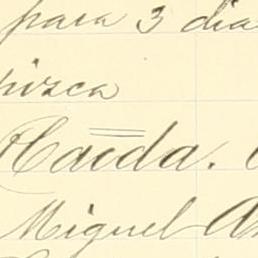 para 3 dia
pizca
Haida.
Miguel